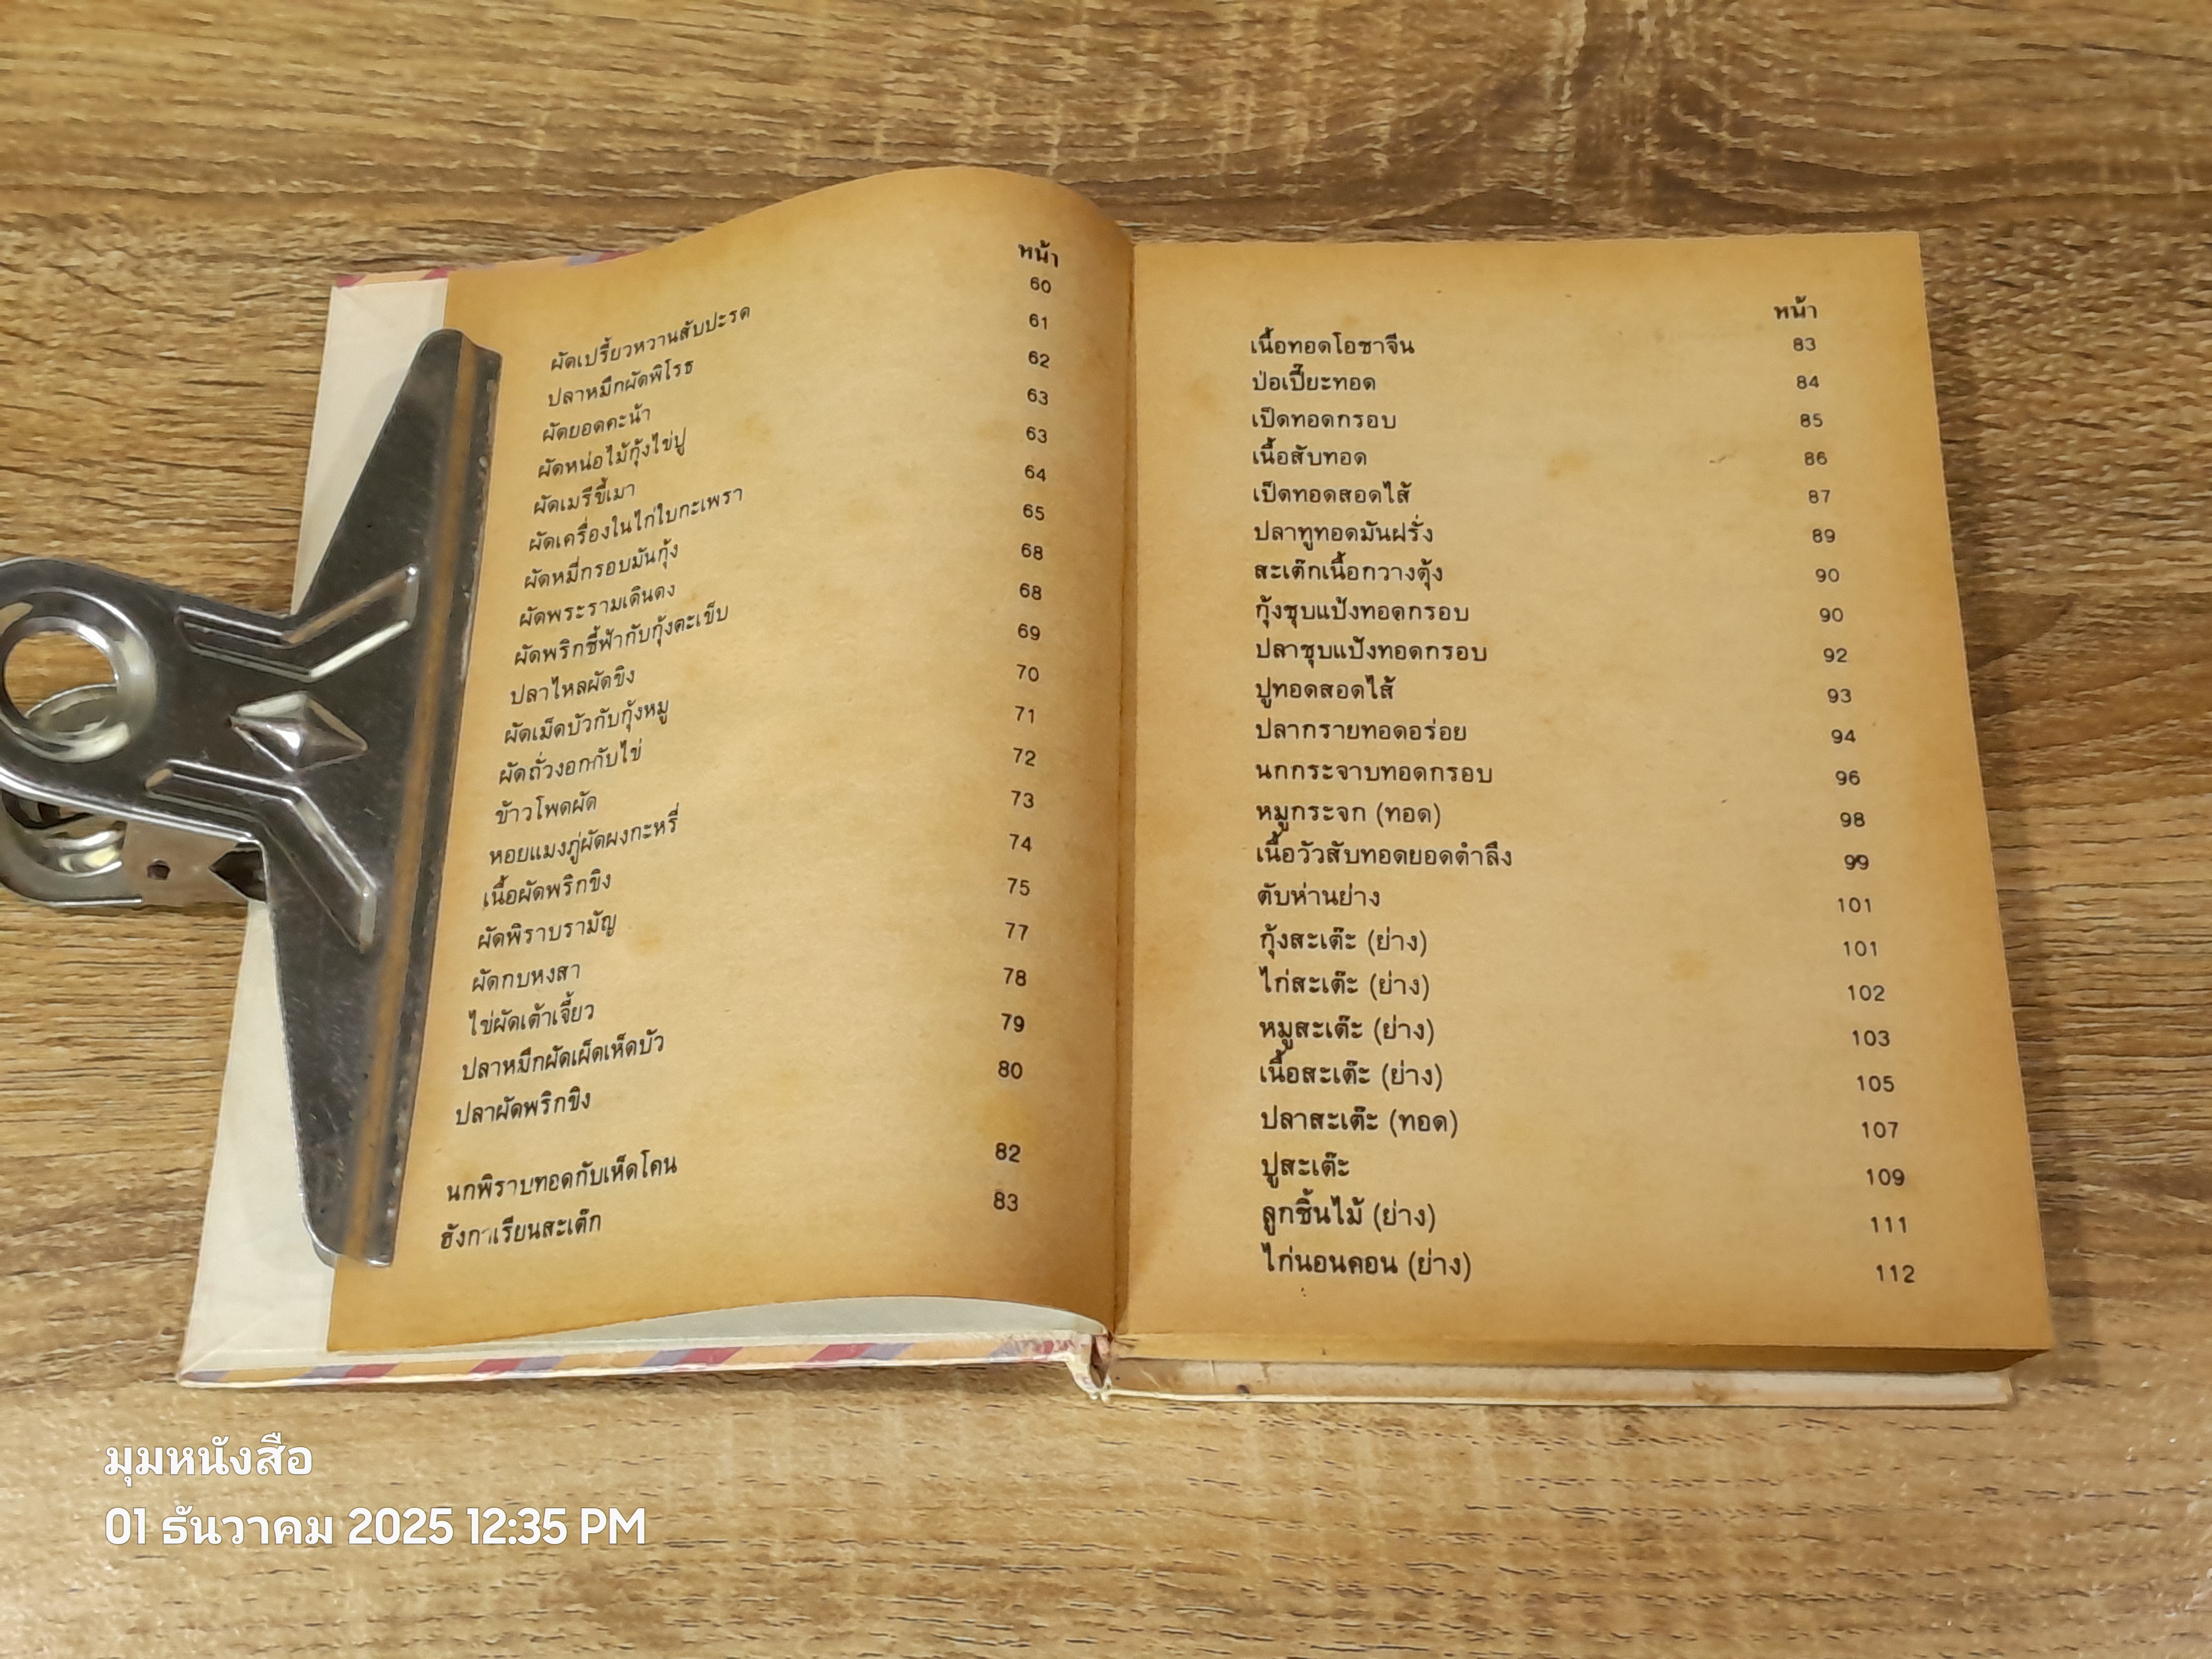 หน้า
ผัดเปรี้ยวหวานสับปะรด 60
ปลาหมึกผัดพิโรธ 61
ผัดยอดคะน้า 62
ผัดหน่อไม้กุ้งไข่ปู 63
ผัดเมรีขี้เมา 63
ผัดเครื่องในไก่ใบกะเพรา 64
ผัดหมี่กรอบมันกุ้ง 65
ผัดพระรามเดินดง 68
ผัดพริกชี้ฟ้ากับกุ้งตะเข็บ 68
ปลาไหลผัดขิง 69
ผัดเม็ดบัวกับกุ้งหมู 70
ผัดถั่วงอกกับไข่ 71
ข้าวโพดผัด 72
หอยแมงภู่ผัดผงกะหรี่ 73
เนื้อผัดพริกขิง 74
ผัดพิราบรามัญ 75
ผัดกบหงสา 77
ไข่ผัดเต้าเจี้ยว 78
ปลาหมึกผัดเผ็ดเห็ดบัว 79
ปลาผัดพริกขิง 80
นกพิราบทอดกับเห็ดโคน 82
ฮังกาเรียนสะเต๊ก 83
หน้า
เนื้อทอดโอชาจีน 83
ป่อเปี๊ยะทอด 84
เป็ดทอดกรอบ 85
เนื้อสับทอด 86
เป็ดทอดสอดไส้ 87
ปลาทูทอดมันฝรั่ง 89
สะเต๊กเนื้อกวางตุ้ง 90
กุ้งชุบแป้งทอดกรอบ 90
ปลาชุบแป้งทอดกรอบ 92
ปูทอดสอดไส้ 93
ปลากรายทอดอร่อย 94
นกกระจาบทอดกรอบ 96
หมูกระจก (ทอด) 98
เนื้อวัวสับทอดยอดตำลึง 99
ตับห่านย่าง 101
กุ้งสะเต๊ะ (ย่าง) 101
ไก่สะเต๊ะ (ย่าง) 102
หมูสะเต๊ะ (ย่าง) 103
เนื้อสะเต๊ะ (ย่าง) 105
ปลาสะเต๊ะ (ทอด) 107
ปูสะเต๊ะ 109
ลูกชิ้นไม้ (ย่าง) 111
ไก่นอนคอน (ย่าง) 112
มุมหนังสือ
01 ธันวาคม 2025 12:35 PM